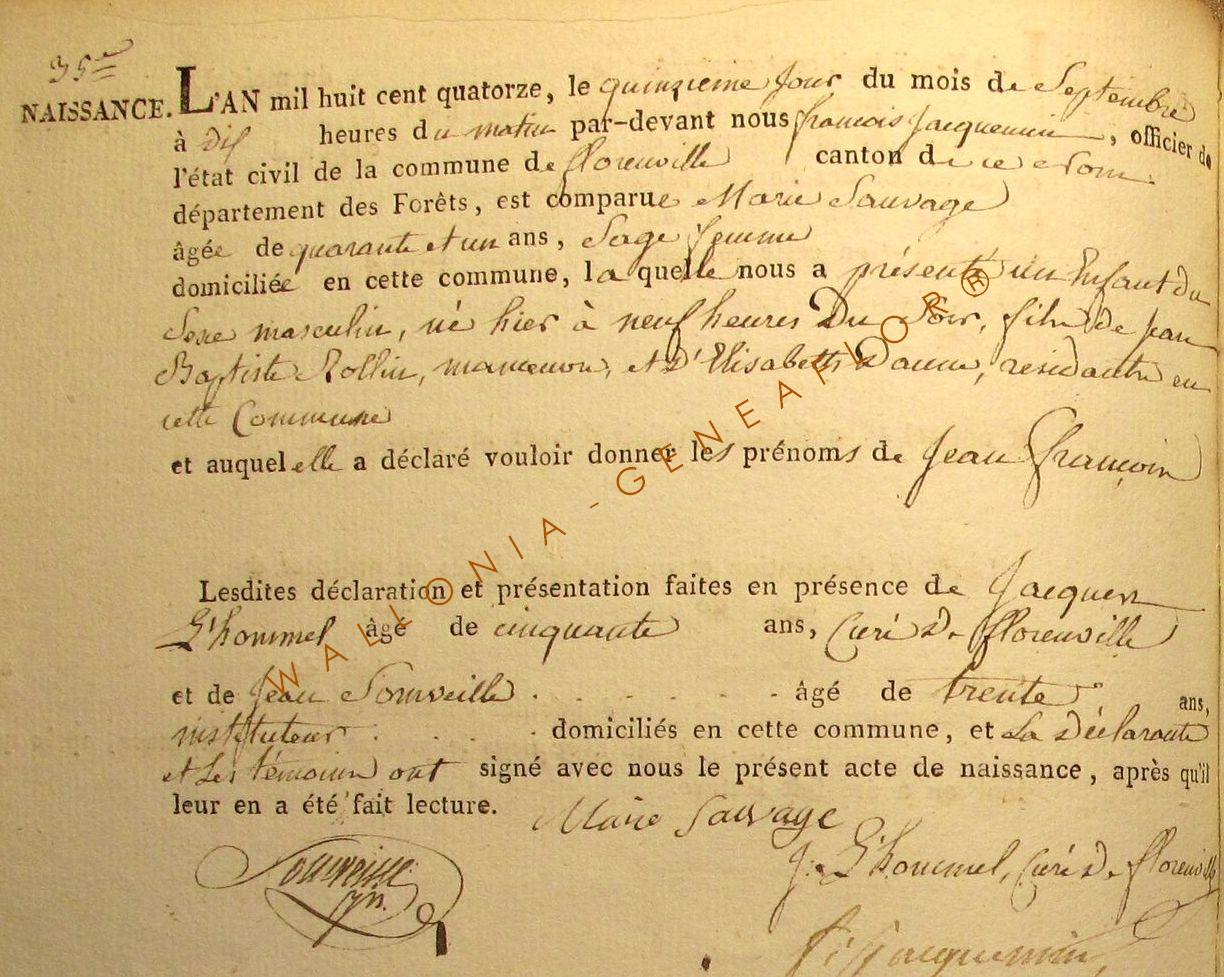 35me
NAISSANCE. L'AN mil huit cent quatorze, le quinzieme Jour du mois de Septembre
à dix heures du matin par-devant nous francois Jacquemin, officier de
l'état civil de la commune de florenville canton de ce Nom
département des Forêts, est comparue Marie Sauvage
âgée de quarante et un ans, Sage femme
domiciliée en cette commune, la quelle nous a présenté un Enfant du
Sexe masculin, né hier à neuf heures Du Soir, fils de Jean
Baptiste Rollin, et D'Elisabeth residants en
cette Commune
et auquel elle a déclaré vouloir donner les prénoms de Jean François
Lesdites déclaration et présentation faites en présence de Jacques
L'hommel âgé de cinquante ans, Curé De florenville
et de Jean Someille âgé de trente ans,
instituteur domiciliés en cette commune, et La Déclarante
et Les témoins ont signé avec nous le présent acte de naissance, après qu'il
leur en a été fait lecture.
Marie Sauvage
J. L'hommel, Curé De florenville
f. Jacquemin
WALLONIA - GENEAFLOR ®